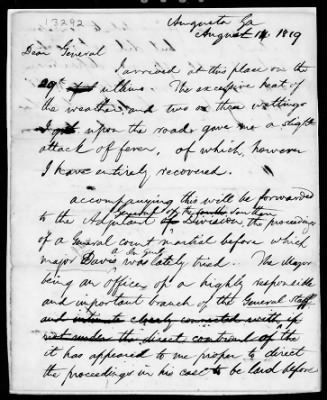 13292
Augusta Ga
August 14. 1819
Dear General
I arrived at this place on the
29th ultimo. The excessive heat of
the weather, and two or three wettings
I got upon the road, gave me a slight
attack of fever, of which however
I have entirely recovered.
accompanying this will be forwarded
General of the Southern
to the Adjutant Division, the proceedings
of a General court martial before which
in July
major Davis was lately tried. The Major
being an officer of a highly responsible
and important branch of the General Staff
and intimate closely connected with, if
not under the direct controul of the
it has appeared to me proper to direct
the proceedings in his case to be laid before